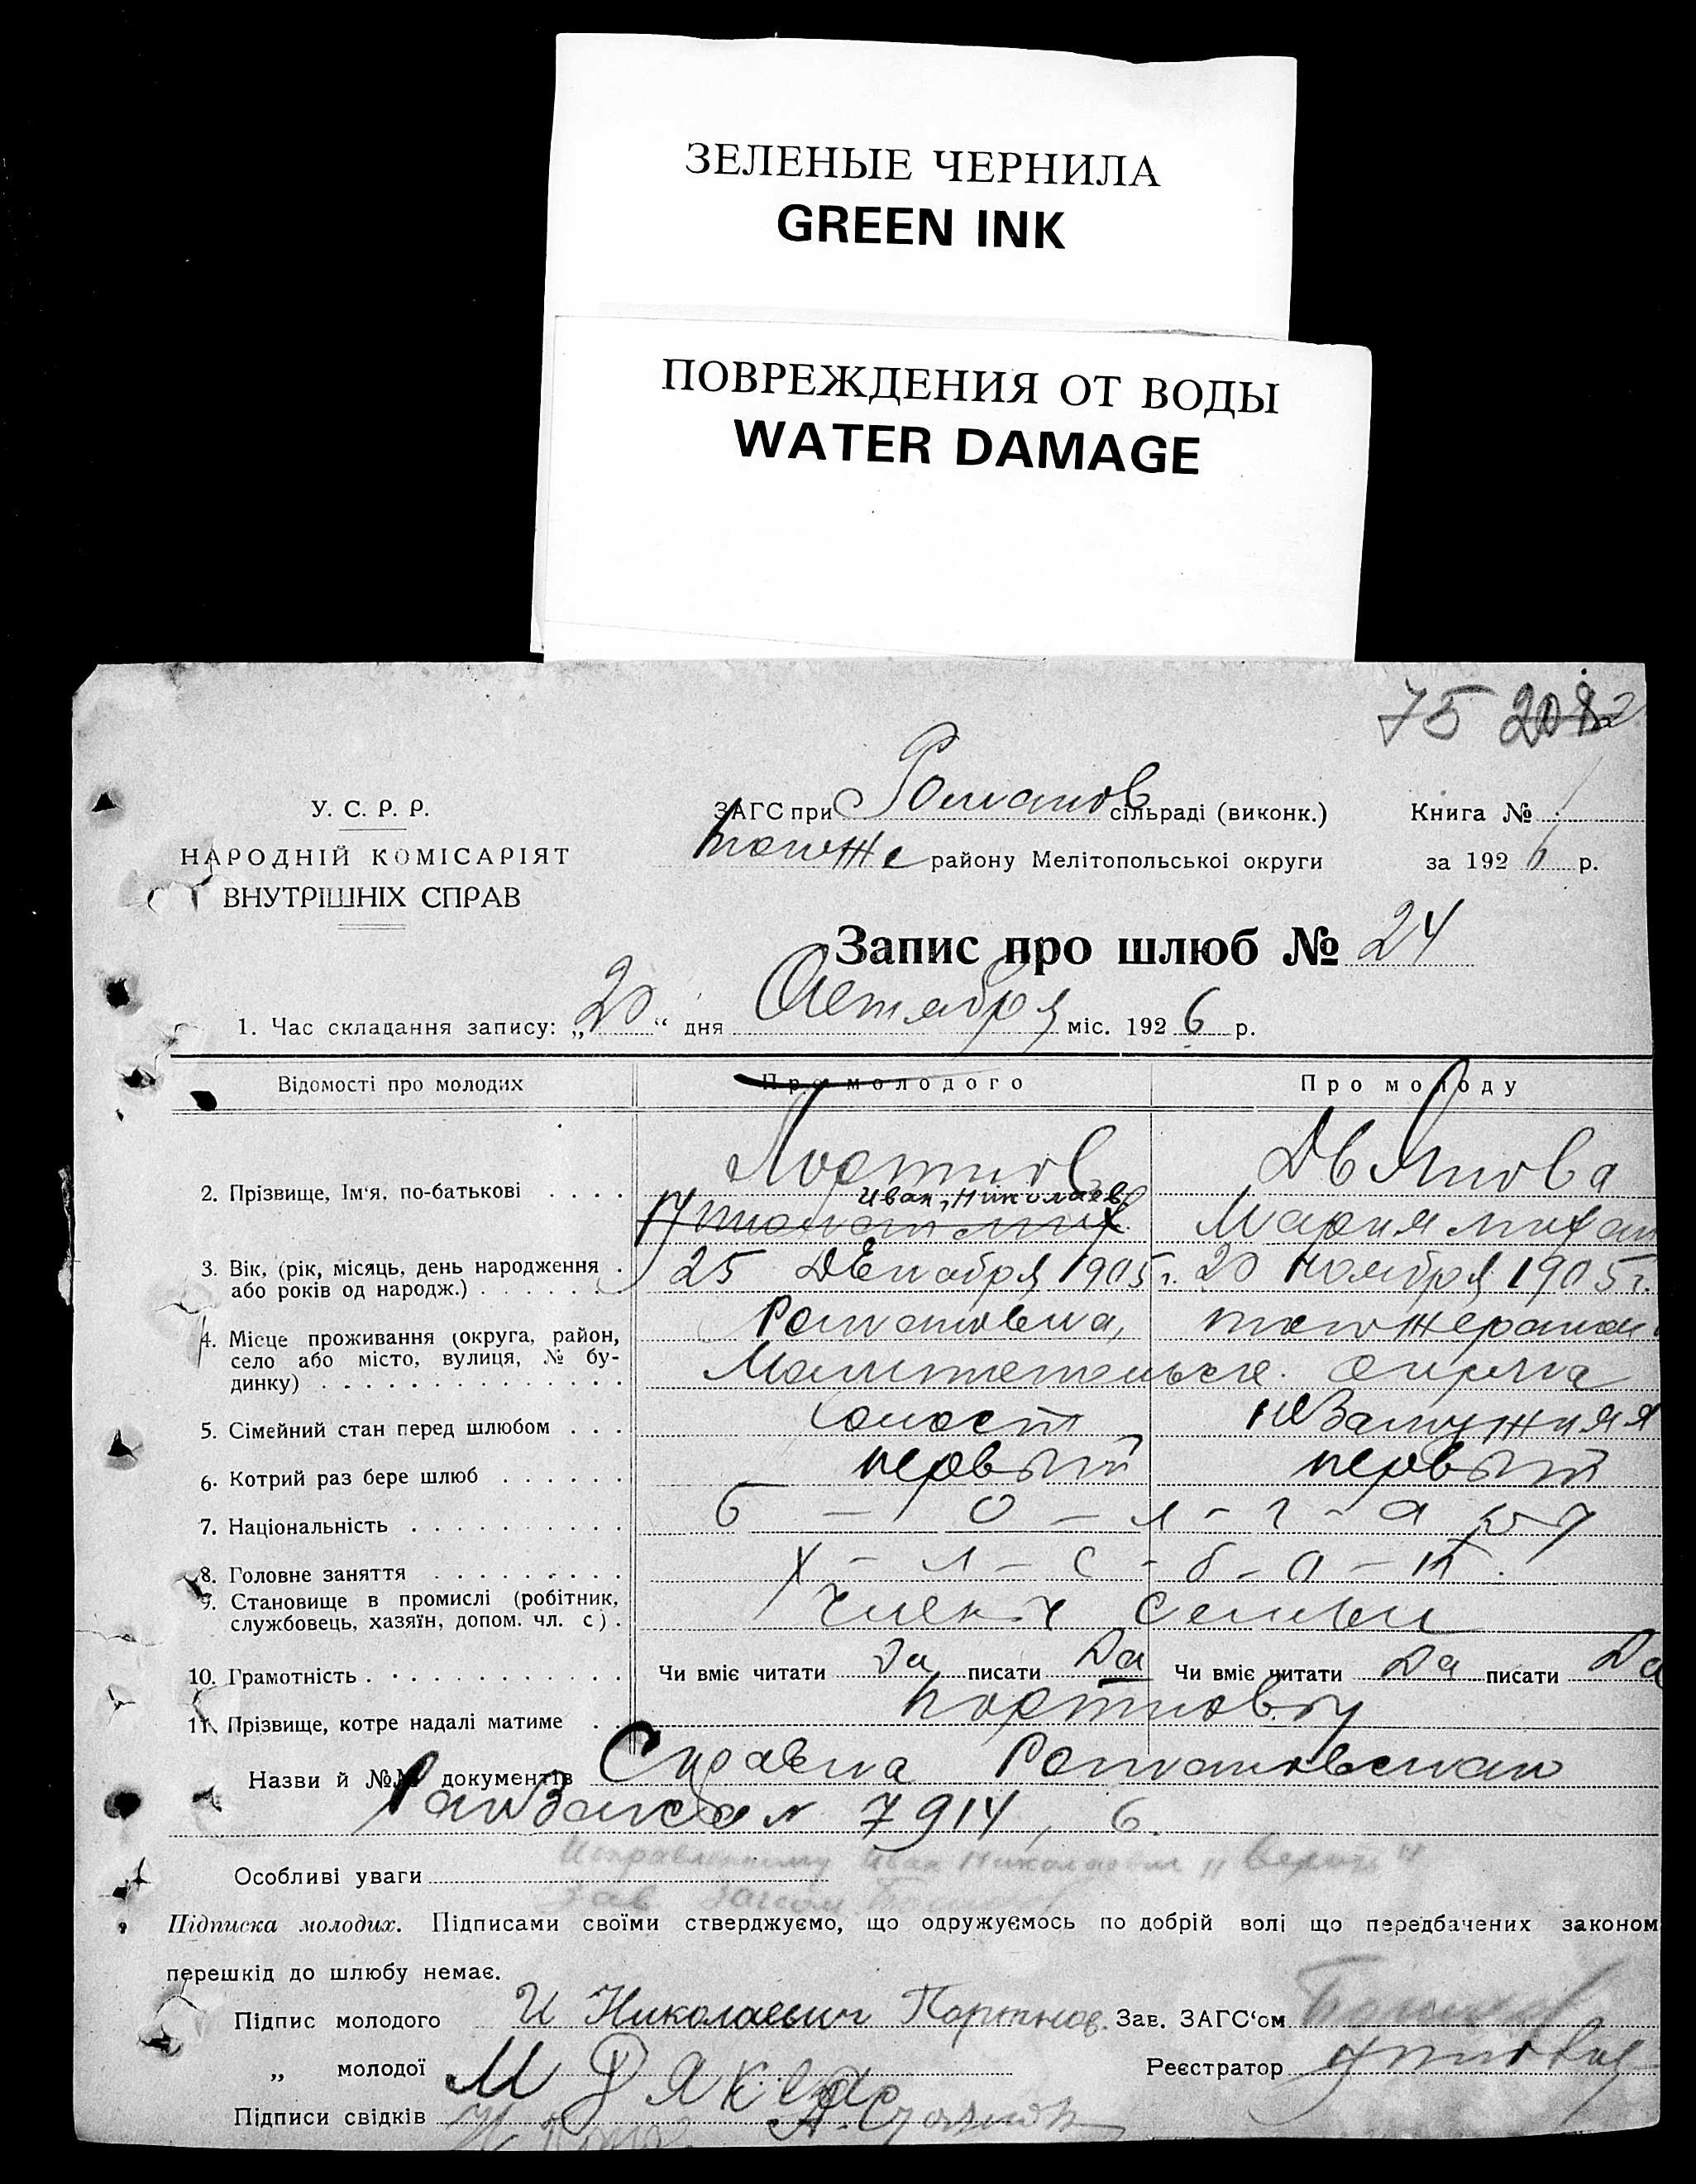 ЗЕЛЕНЫЕ ЧЕРНИЛА
GREEN INK
ПОВРЕЖДЕНИЯ ОТ ВОДЫ
WATER DAMAGE
75
У. С. Р. Р.
НАРОДНІЙ КОМІСАРІЯТ
ВНУТРІШНІХ СПРАВ
ЗАГС при Романов сільраді (виконк.) Книга №
тоиже району Мелітопольської округи за 1926 р.
Запис про шлюб № 24
1. Час складання запису: „20“ дня Октября міс. 1926 р.
Відомості про молодих Про молодого Про молоду
2. Прізвище, Ім'я, по-батькові Портнов
Иван, Николаев Мария
3. Вік, (рік, місяць, день народження 25 Декабря 1905 г. 20 Ноября 1905 г.
або років од народж.)
4. Місце проживання (округа, район, Романовка,
село або місто, вулиця, № бу-
динку) округа
5. Сімейний стан перед шлюбом холост незамужняя
6. Котрий раз бере шлюб первый первый
7. Національність б - о - л - г - а
8. Головне заняття Х - л - е - б - о - п.
9. Становище в промислі (робітник,
службовець, хазяїн, допом. чл. с). Члены семьи
10. Грамотність Чи вміє читати Да писати Да Чи вміє читати Да писати Да
11. Прізвище, котре надалі матиме Портновы
Назви й №№ документів Справка Романовскаго
7914, 6.
Исправленному Иван Николаевич „Верить"
Особливі уваги
Зав Загсом
Підписка молодих. Підписами своїми стверджуємо, що одружуємось по добрій волі що передбачених законом
перешкід до шлюбу немає.
Підпис молодого И Николаевич Портнов. Зав. ЗАГС'ом
„ молодої М Реєстратор
Підписи свідків